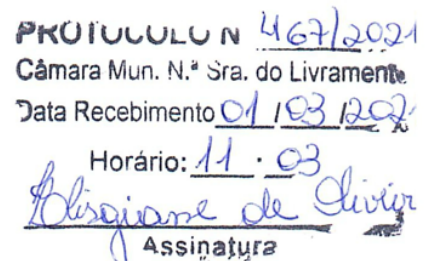 PROTOCOLO N 467/2021
Câmara Mun. N.ª Sra. do Livramento
Data Recebimento 01/03/202
Horário: 11 · 03
de Oliveir
Assinatura